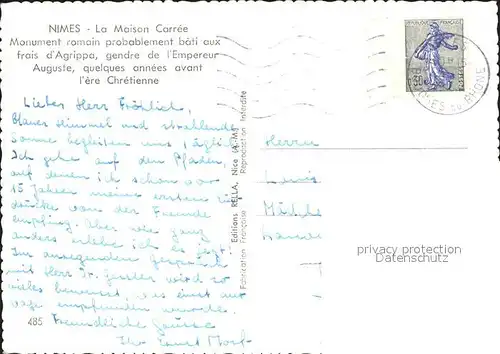 NIMES - La Maison Carrée
Monument romain probablement bâti aux
frais d'Agrippa, gendre de l'Empereur
Auguste, quelques années avant
l'ère Chrétienne
Lieber Herr Fröhlich,
Blauer Himmel und strahlende
Sonne begleiten uns
Ich gehe auf den Pfaden,
auf denen ich schon vor
15 Jahren meine ersten
drücke von der Fremde
empfing. Aber wie ganz
anders erlebe ich es jetzt.
Im anregenden Gespräch
mit Herr Dr. wird so
vieles bewusst, das einst nur
vage empfunden wurde.
Freundliche Grüsse
Ihr Ernst
485
Editions RELLA, Nice (A.-M.)
Fabrication Française - Reproduction Interdite
REPUBLIQUE FRANÇAISE
RHONE
Herrn
Louis
privacy protection
Datenschutz